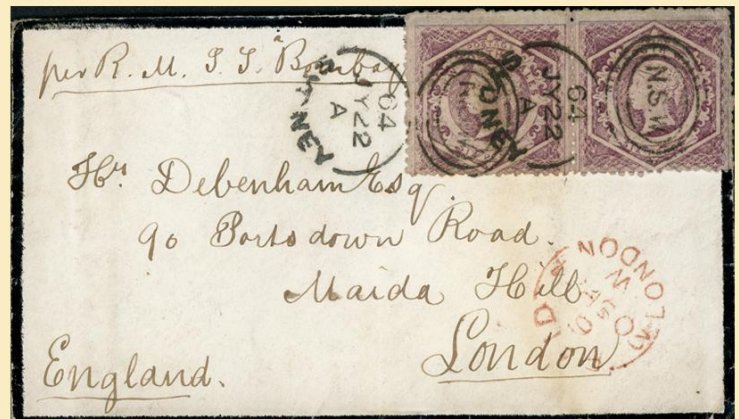 per R. M. S. S. Bombay
SYDNEY
JY 22
A
64
SYDNEY
JY 22
A
64
N.S.W
POSTAGE
Hy. Debenham Esq.
90 Portsdown Road.
Maida Hill
London
England.
LONDON